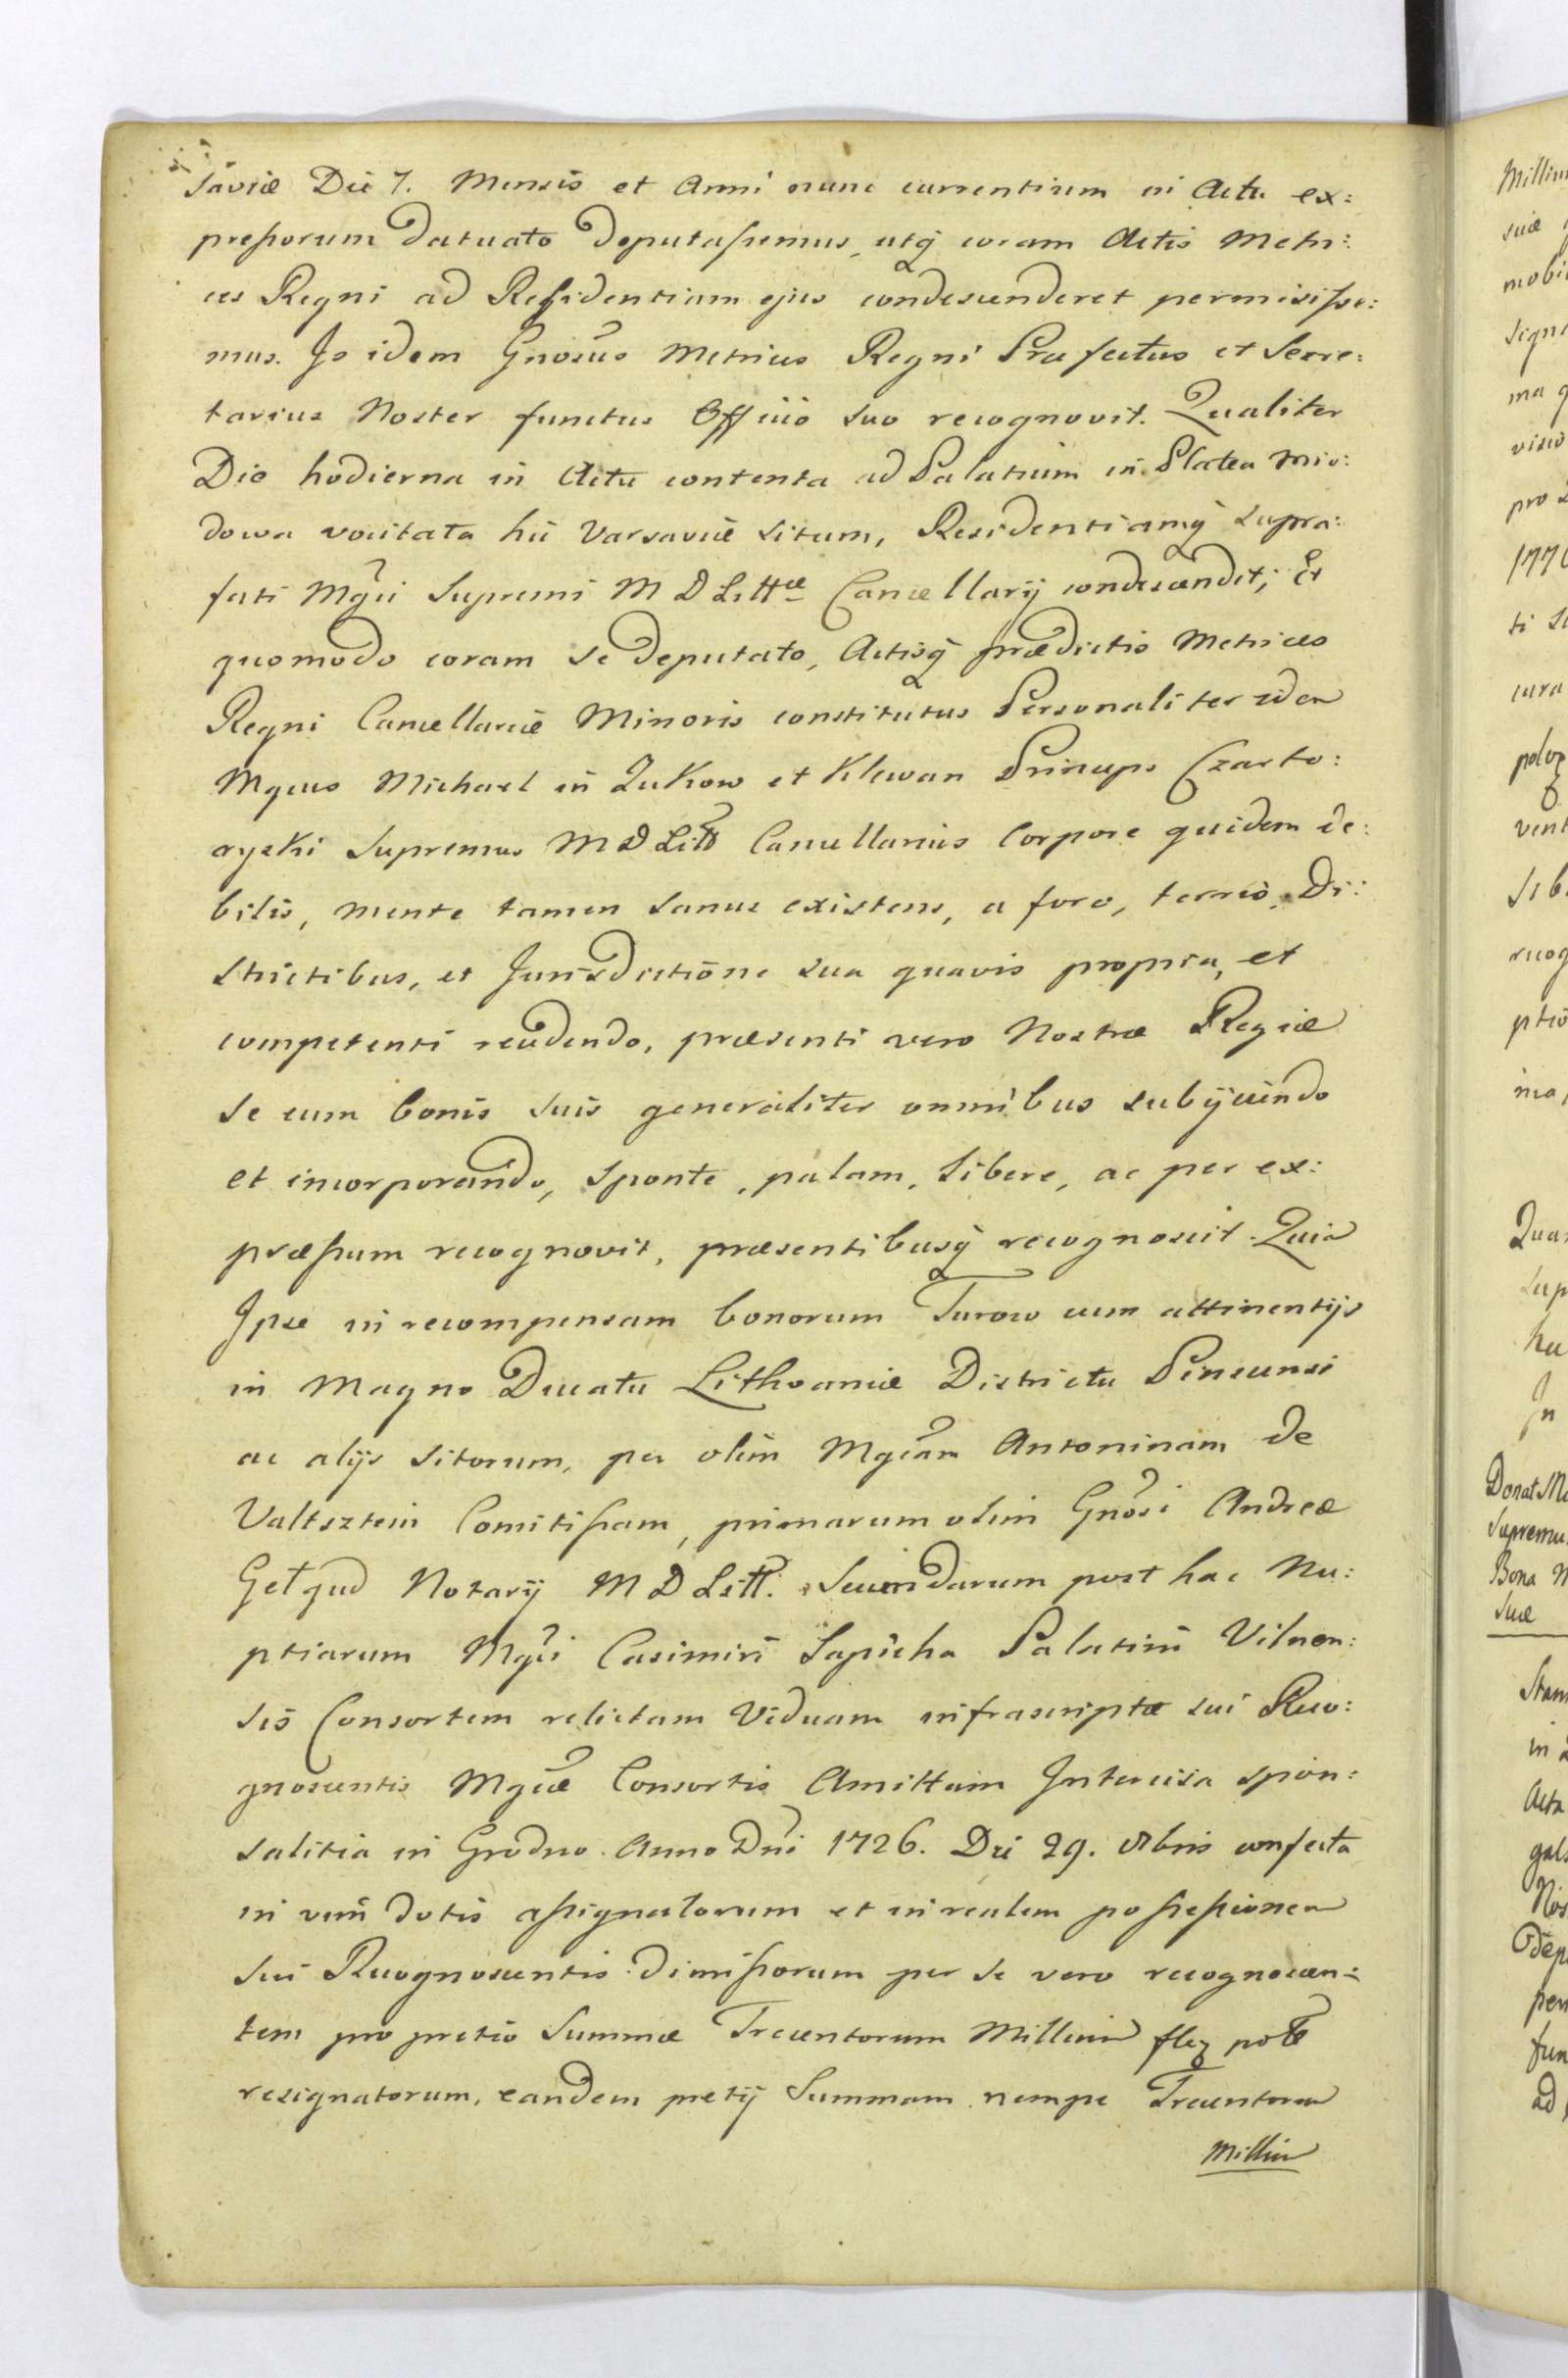 saviæ Die 7. Mensis et Anni nunc currentium in Actu ex:
preßorum datuato deputaßemus, utq coram Actis Metri:
ces Regni ad Reßidentiam ejus condescenderet permisiße:
mus. Is idem Gnosus Metrices Regni Præfectus et Secre:
tarius Noster functus Officio suo recognovit. Qualiter
Die hodierna in Actu contenta ad Palatium in Platea Mio:
dowa vocitata hic Varsaviæ situm, Residentiamq supra:
fati Mgci Supremi M D Littæ Cancellarij condescendit; Et
quomodo coram se deputato, Actisq prædictis Metrices
Regni Cancellariæ Minoris constitutus Personaliter idem
Mgcus Michael in Zukow et Klewan Princeps Czarto:
ryski Supremus M D Litt Cancellarius Corpore quidem de:
bilis, mente tamen sanus existens, a foro, terris, Di:
strictibus, et Jurisdictione sua quavis propria, et
competenti recedendo, præsenti vero Nostræ Regiæ
se cum bonis suis generaliter omnibus subijciendo
et incorporando, sponte, palam, libere, ac per ex:
præßum recognovit, præsentibusq recognoscit. Quia
Ipse in recompensam bonorum Turow cum attinentijs
in Magno Ducatu Lithvaniæ Districtu Pinscensi
ac alijs sitorum, per olim Mgcam Antoninam de
Valtsztein Comitißam, primarum olim Gnosi Andreæ
Getgud Notarij M D Litt. Secundarum post hac Nu:
ptiarum Mgci Casimiri Sapieha Palatini Vilnen:
sis Consortem relictam Viduam infrascriptæ sui Reco:
gnoscentis Mgcæ Consortis Amittam Intercisa spon:
salitia in Grodno Anno Dni 1726. Die 29. vibris confecta
in vim dotis aßignatorum et in realem poßeßionem
sui Recognoscentis dimißorum per se vero recognoscen:
tem pro pretio Summæ Trecentorum Millium flcz
resignatorum, eandem pretij Summam nempe Trecentorum
Millium
Donat
Supremu
Bona M
suæ
Quan
ad